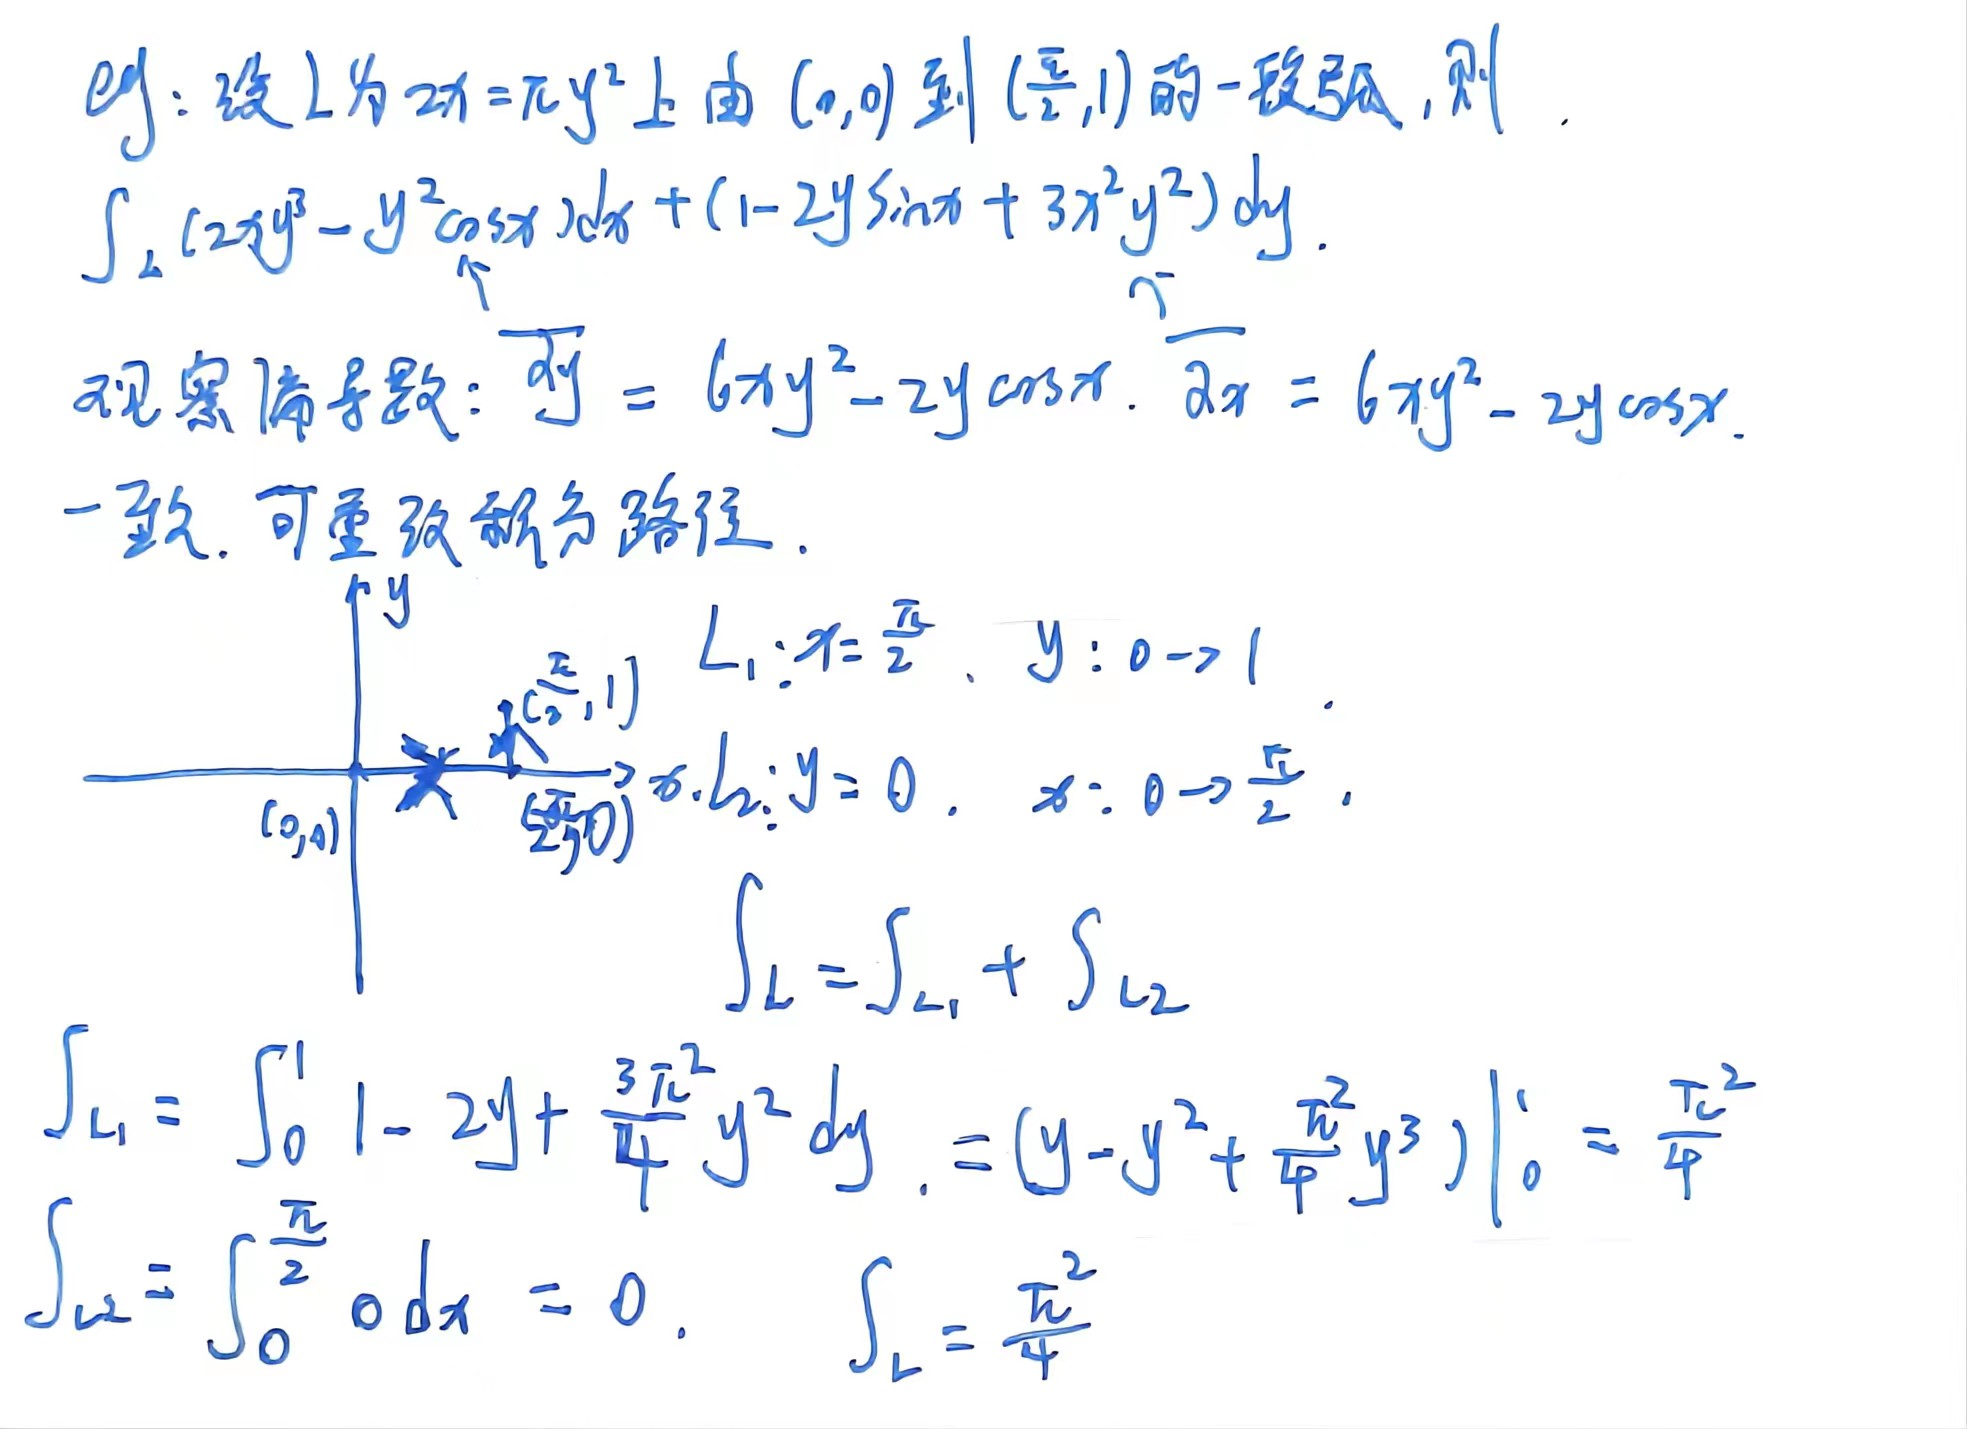 eg：设L为2x=πy²上由(0,0)到(π/2,1)的一段弧，则.
∫_L (2xy³-y²cosx)dx+(1-2ysinx+3x²y²)dy.
↑ ↑
观察偏导数： ‾/∂y = 6xy²-2ycosx. ‾/∂x = 6xy²-2ycosx.
一致. 可重改积分路径.
y
L₁: x=π/2. y: 0->1.
(π/2,1)
x. L₂: y=0. x: 0->π/2.
(0,0) (π/2,0)
∫_L=∫_L₁+∫_L2
∫_L₁=∫₀¹ 1-2y+3π²/4 y² dy.=(y-y²+π²/4 y³)|₀¹=π²/4
∫_L2=∫₀^(π/2) 0dx=0. ∫_L=π²/4